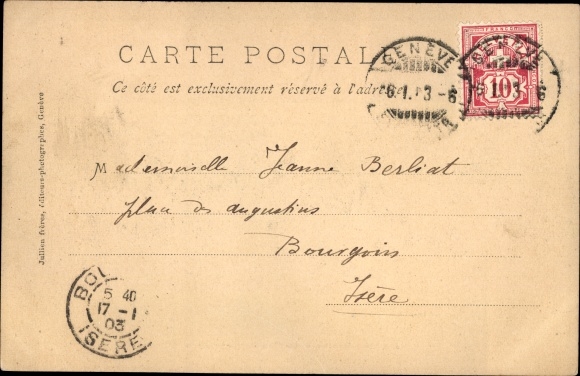 CARTE POSTALE
Ce côté est exclusivement réservé à l'adresse
GENÈVE
GENÈVE
FRANCO
10
Mademoiselle Jeanne Berliat
place des augustins
Bourgoin
Isère
Jullien frères, éditeurs-photographes, Genève
BOU
5 40
17 - 1
03
ISÈRE